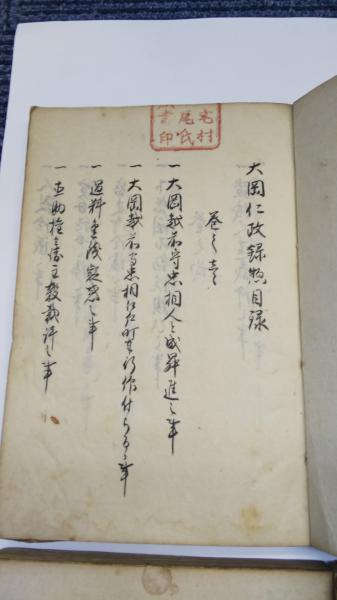 大岡仁政録惣目録
巻之壱
一 大岡越前守忠相人と成昇進之事
一 大岡越前守忠相江戸町奉行被仰付らるゝ事
一 過料金浅疑惑之事
一 直助権兵衛主殺裁許之事
宅村
尾氏
書印